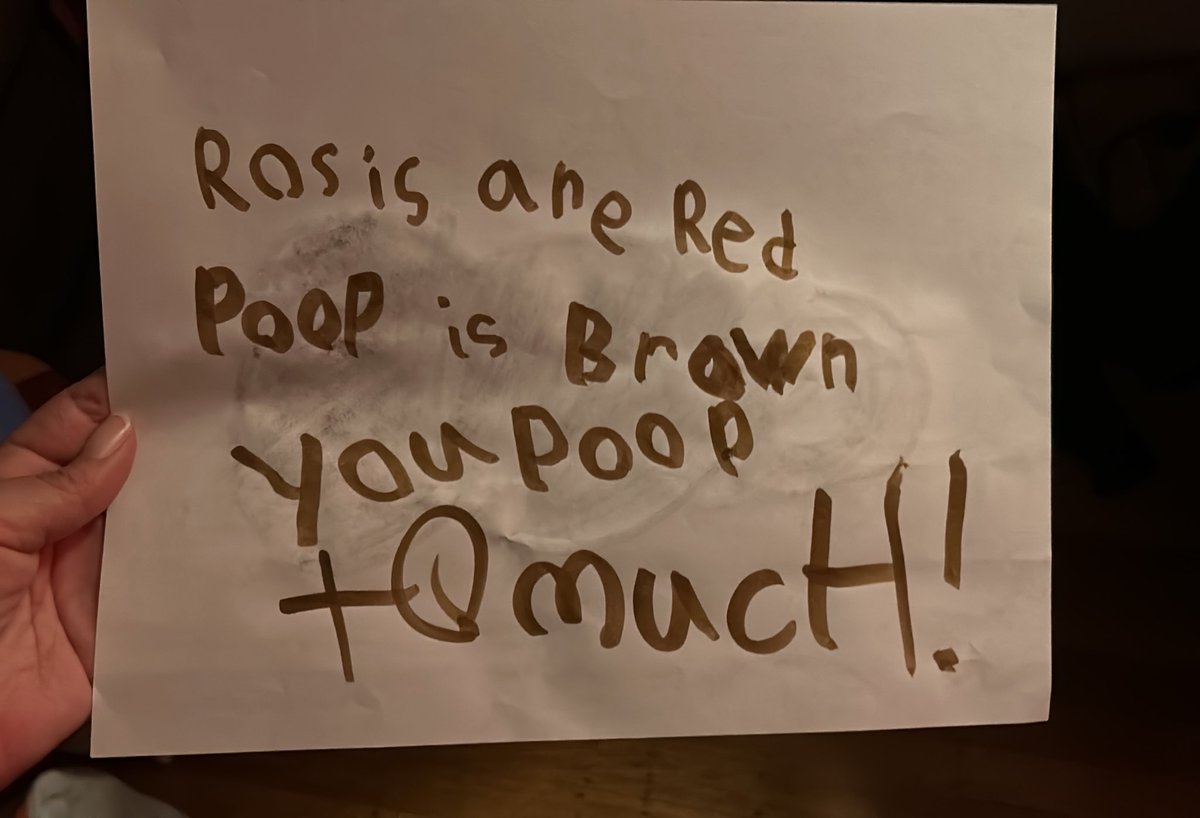 Rosis are Red
Poop is Brown
you poop
to mucH!